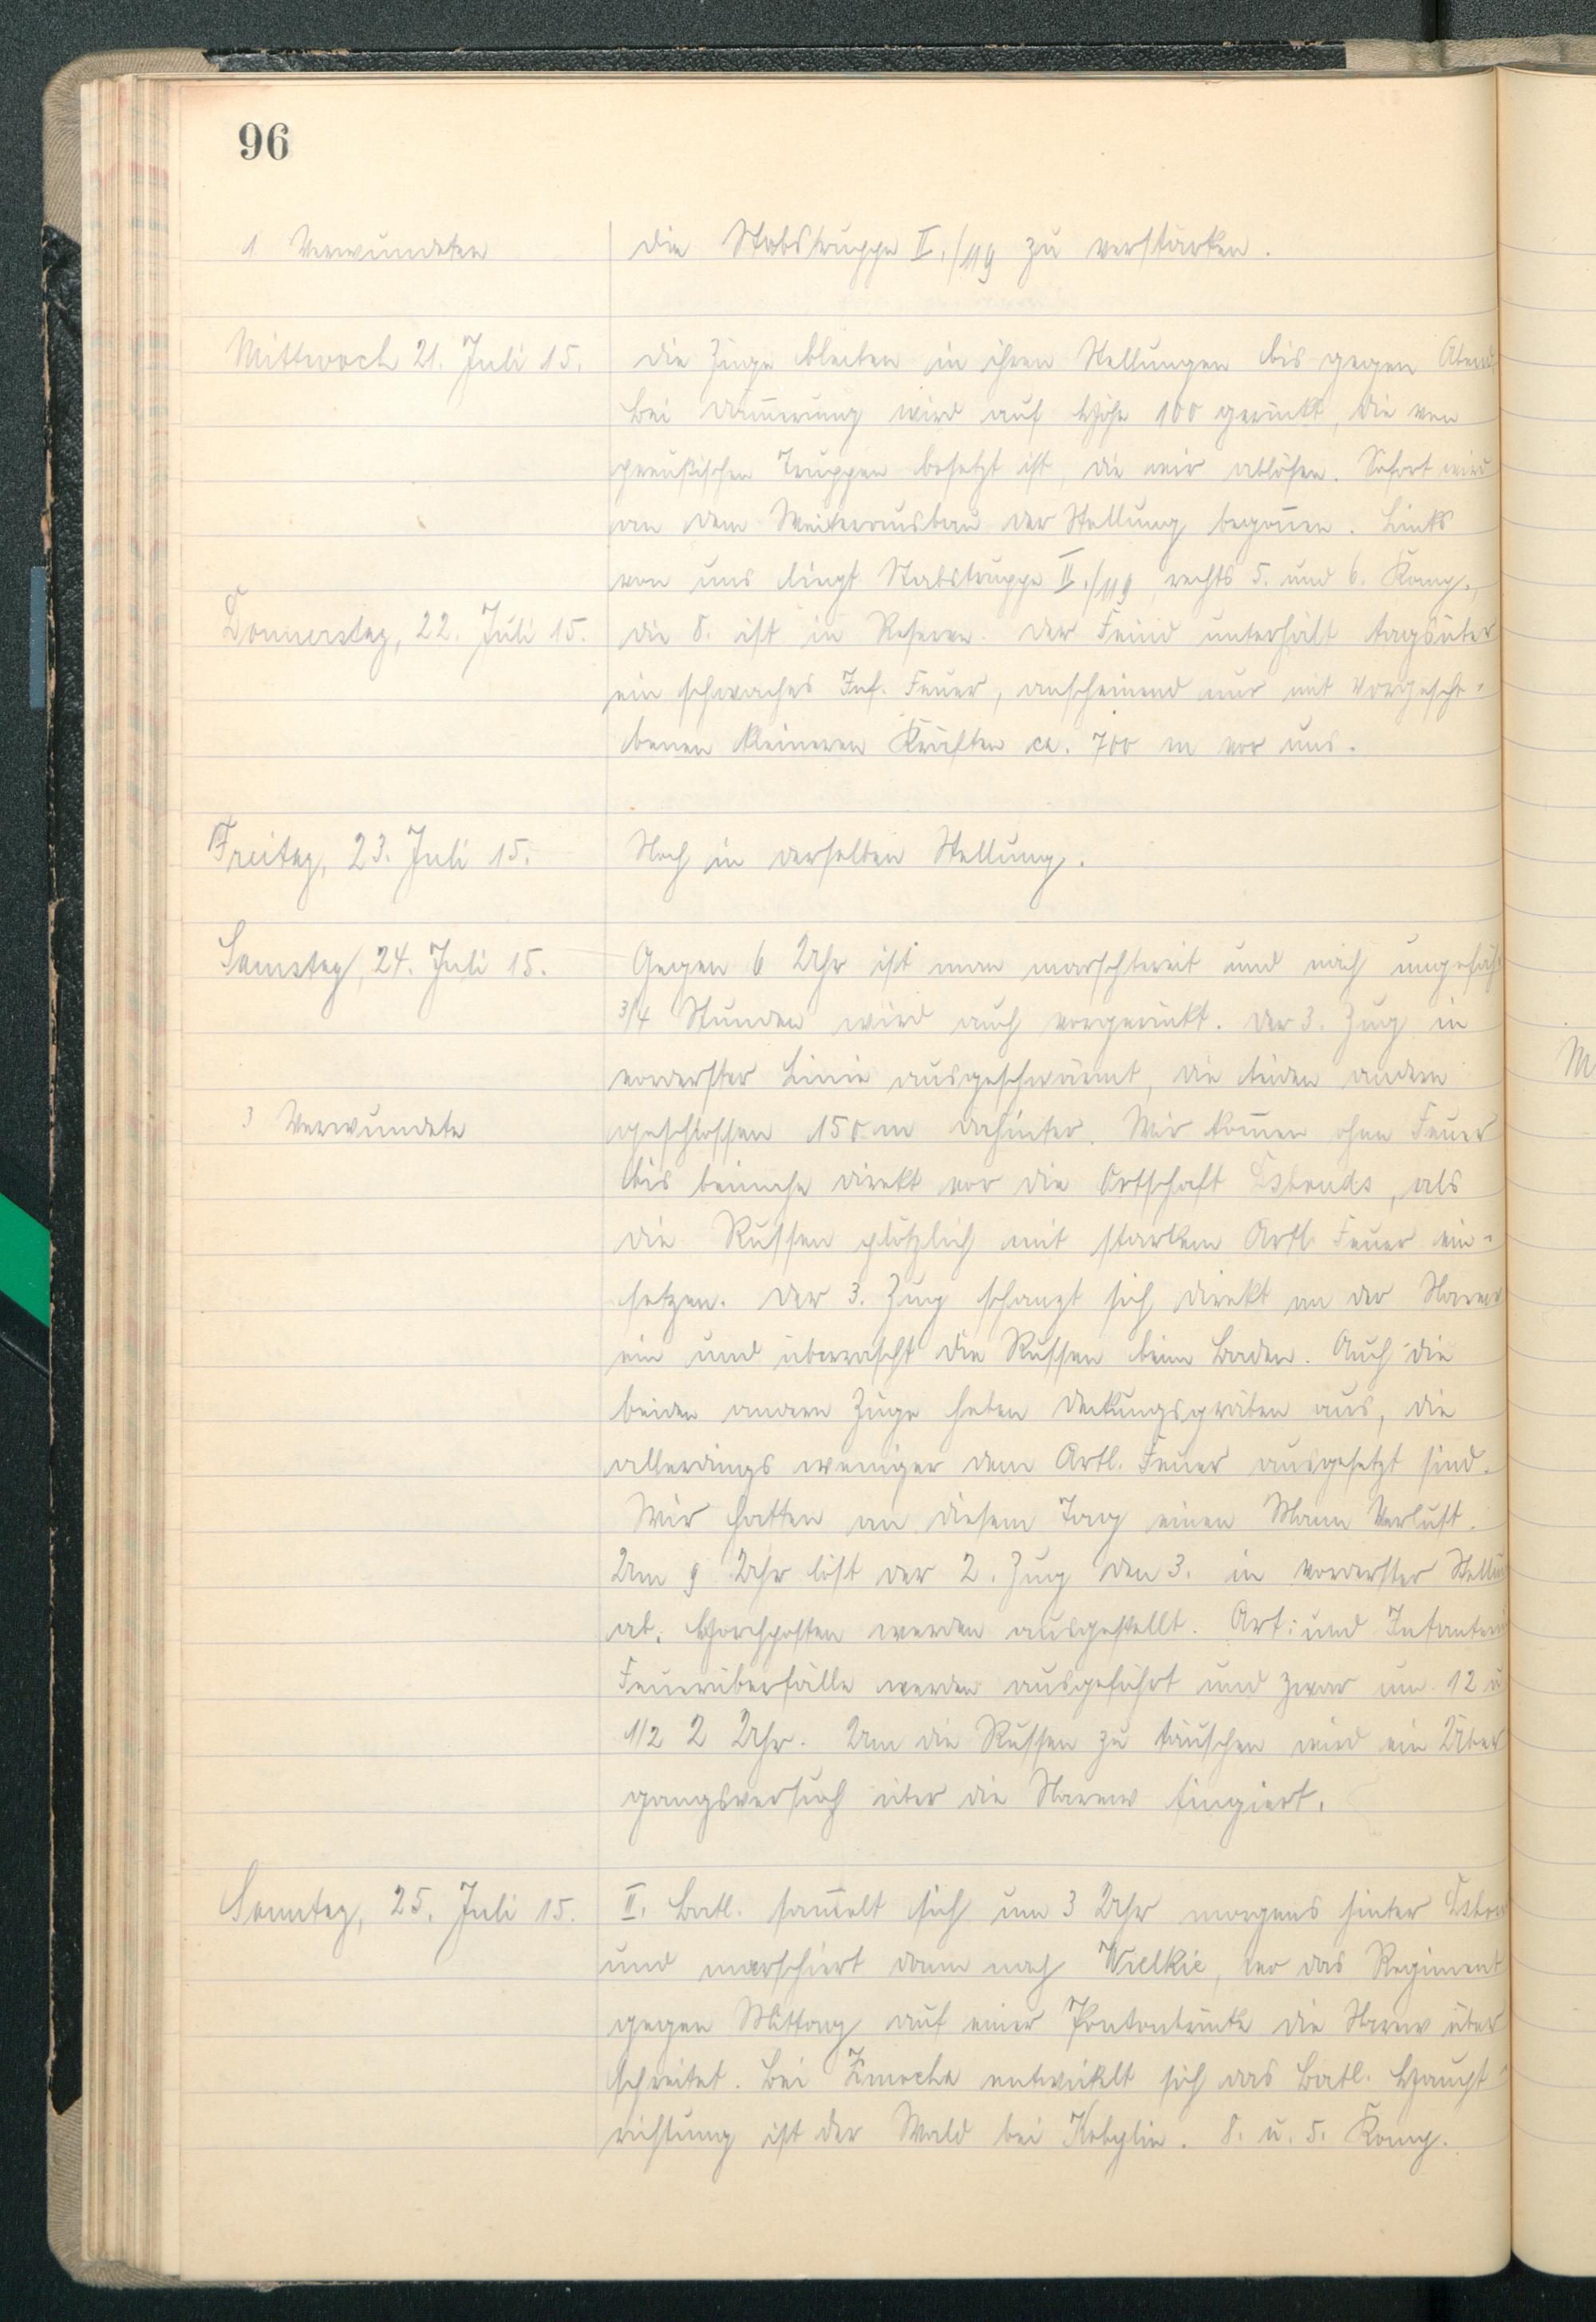 96
1 Verwundeten
die Stabstruppe II./119 zu verstärken.
Mittwoch 21. Juli 15.
Die Züge bleiben in ihren Stellungen bis gegen Abend
Bei Dam̄erung wird auf Höhe 100 gerückt, die von
preußischen Truppen besetzt ist, die wir ablösen. Sofort wird
an dem Weiterausbau der Stellung begon̄en. Links
von uns liegt Stabstruppe II./119, rechts 5. und 6. Komp.,
Donnerstag, 22. Juli 15.
die 8. ist in Reserve. Der Feind unterhält tagsüber
ein schwaches Inf. Feuer, anscheinend nur mit vorgescho-
benen kleineren Kräften ca. 700 m vor uns.
Freitag, 23. Juli 15.
Noch in derselben Stellung.
Samstag, 24. Juli 15.
Gegen 6 Uhr ist man marschbereit und nach ungefähr
3/4 Stunden wird auch vorgerückt. Der 3. Zug in
vorderster Linie ausgeschwärmt, die beiden andern
3 Verwundete
geschlossen 150 m dahinter. Wir kom̄en ohne Feuer
bis beinahe direkt vor die Ortschaft, als
die Russen plötzlich mit starkem Artl. Feuer ein-
setzen. Der 3. Zug schanzt sich direkt an der Narew
ein und überrascht die Russen beim Baden. Auch die
beiden andern Züge heben Deckungsgräben aus, die
allerdings weniger dem Artl. Feuer ausgesetzt sind.
Wir hatten an diesem Tag einen Mann Verlust.
Um 9 Uhr löst der 2. Zug den 3. in vorderster Stellung
ab. Horchposten werden ausgestellt. Art: und Infanterie
Feuerüberfälle werden ausgeführt und zwar um 12 u
1/2 2 Uhr. Um die Russen zu täuschen wird ein Über
gangsversuch über die Narew fingiert.
Sonntag, 25. Juli 15.
II. Batl. sam̄elt sich um 3 Uhr morgens hinter
und marschiert dann nach Wielkie, wo das Regiment
gegen Mittag auf einer Pontonbrücke die Narew über
schreitet. Bei Zmocha entwickelt sich das Batl. Haupt-
richtung ist der Wald bei Kobylin. 8. u. 5. Komp.